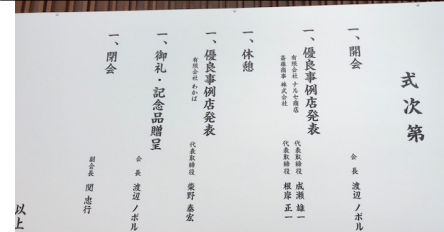 式次第
一、開会
会長 渡辺ノボル
一、優良事例店発表
有限会社 ナルセ商店 代表取締役 成瀬 雄一
斎藤商事 株式会社 代表取締役 根岸 正一
一、休憩
一、優良事例店発表
有限会社 わかば 代表取締役 柴野 泰宏
一、御礼・記念品贈呈
会長 渡辺ノボル
一、閉会
副会長 関 忠行
以上